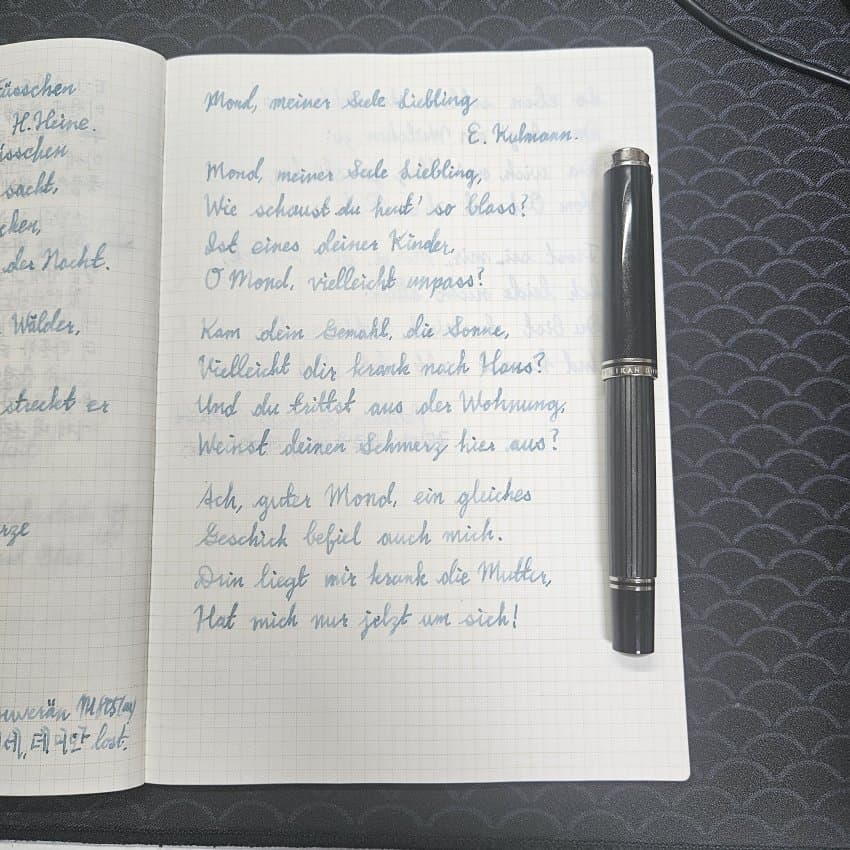 Füsschen
H. Heine.
sacht,
der Nacht.
Wälder,
streckt er
lost.
Mond, meiner Seele Liebling
E. Kulmann.
Mond, meiner Seele Liebling,
Wie schaust du heut' so blass?
Ist eines deiner Kinder,
O Mond, vielleicht unpass?
Kam dein Gemahl, die Sonne,
Vielleicht dir krank nach Haus?
Und du trittst aus der Wohnung,
Weinst deinen Schmerz hier aus?
Ach, guter Mond, ein gleiches
Geschick befiel auch mich.
Drin liegt mir krank die Mutter,
Hat mich nur jetzt um sich!